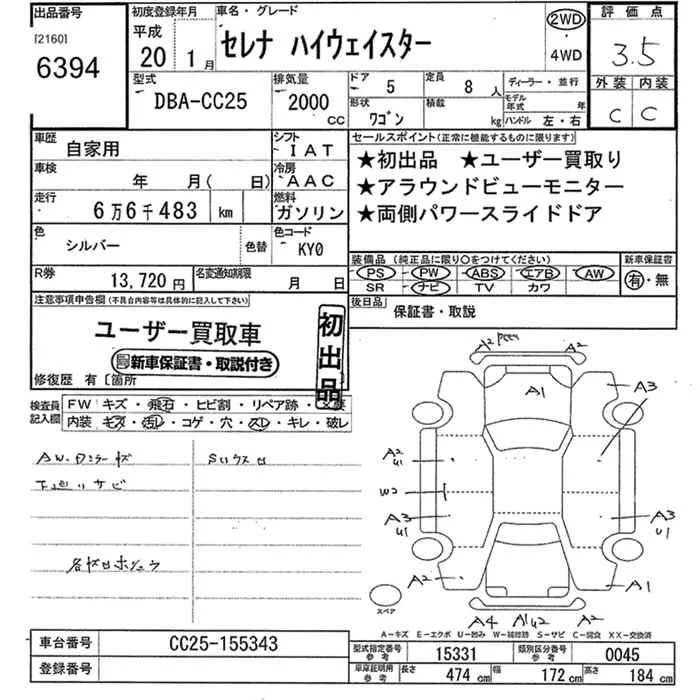 出品番号
[2160]
6394
初度登録年月
平成
20年 1月
車名・グレード
セレナ ハイウェイスター
2WD
・
4WD
評価点
3.5
外装 内装
C C
型式
DBA-CC25
排気量
2000 CC
ドア 5
定員 8人
形状 ワゴン
積載 kg
ディーラー・並行
モデル年式 年
ハンドル 左・右
車歴 自家用
シフト IAT
車検 年 月( 日)
冷房 AAC
走行 6万6千483 km
燃料 ガソリン
色 シルバー
色替
色コード KY0
R券 13,720円
名変通知期限 月 日
セールスポイント(正常に機能するものに限ります)
★初出品 ★ユーザー買取り
★アラウンドビューモニター
★両側パワースライドドア
装備品(純正品に限り○をつけてください)
PS PW ABS エアB AW
SR ナビ TV カワ
新車保証書
有・無
後日品 保証書・取説
注意事項申告欄(不具合内容等は具体的に記入して下さい)
ユーザー買取車
新車保証書・取説付き
初出品
修復歴 有〔箇所
検査員記入欄
FW キズ・飛石・ヒビ割・リペア跡・X要
内装 キズ・汚レ・コゲ・穴・スレ・キレ・破レ
下廻りサビ
A2 A2
A1
A3
A2
U1
W2
A3
U1
A3
U1
A2
A1
A4 A1U2 A2
スペア
A-キズ E-エクボ U-凹み W-補修跡 S-サビ C-腐食 XX-交換済
車台番号 CC25-155343
登録番号
型式指定番号 参考 15331
類別区分番号 参考 0045
車庫証明用 参考 長さ 474cm 幅 172cm 高さ 184cm